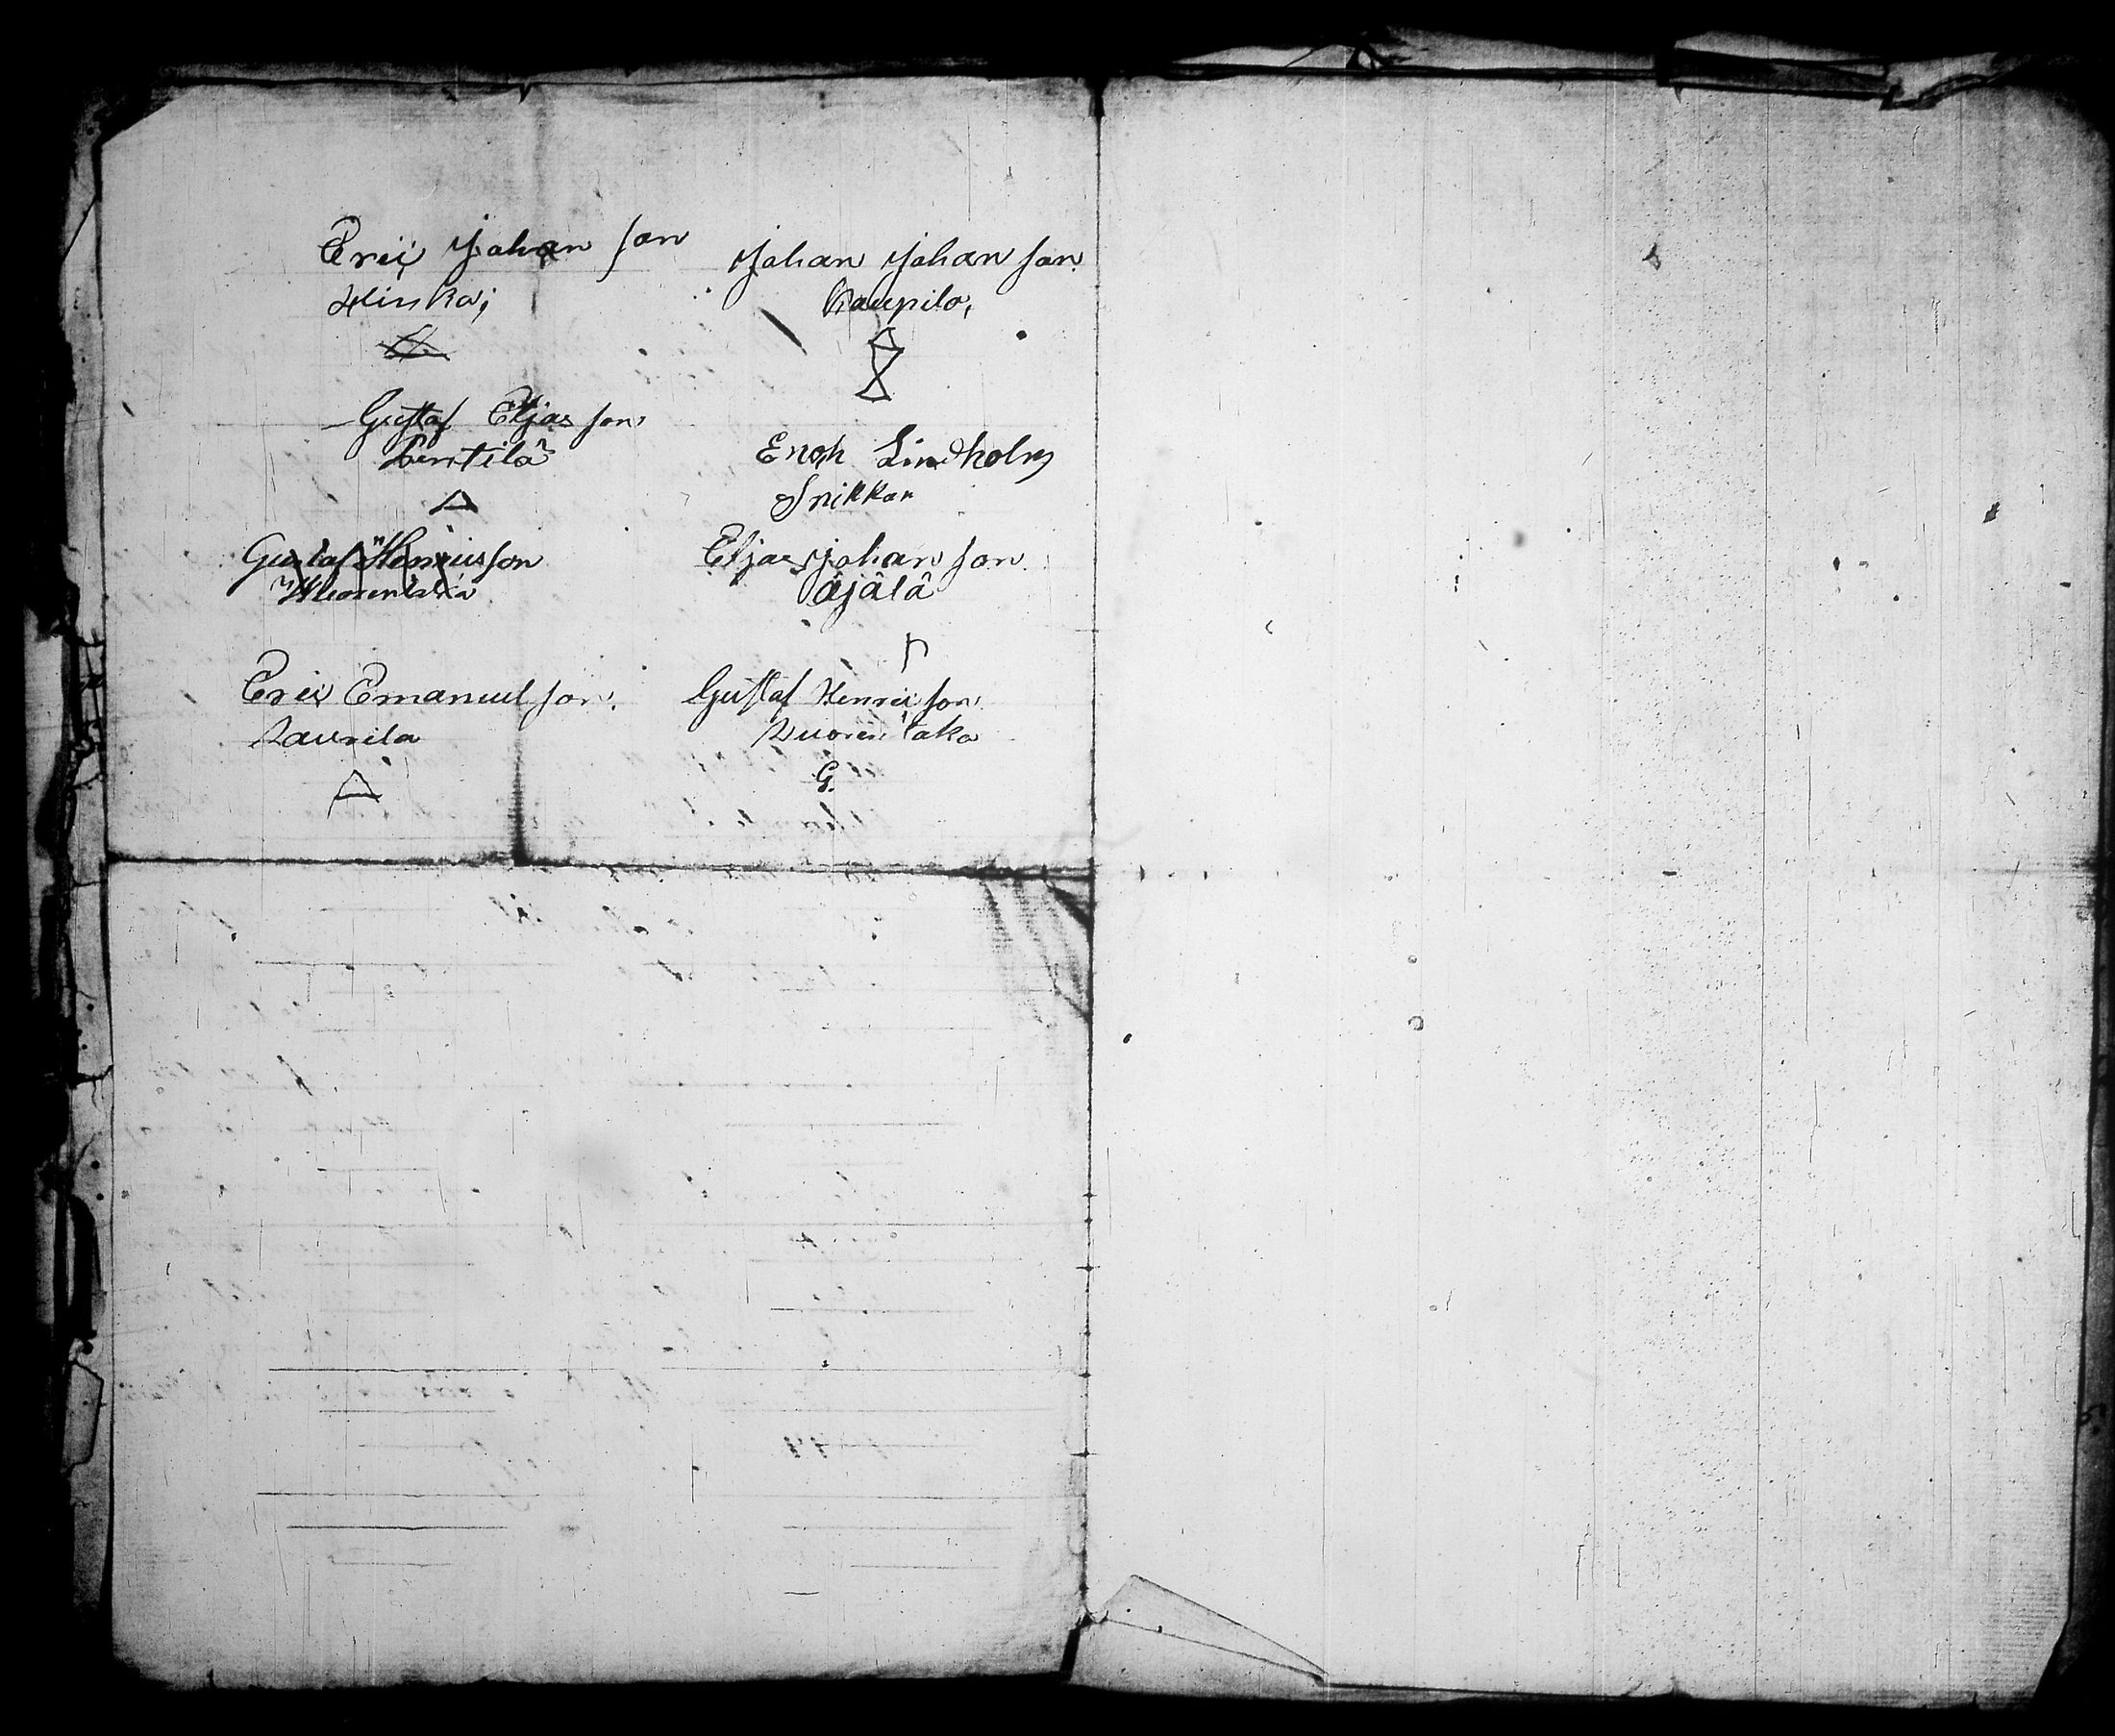 Eric Johan son
Hinka;
Gustaf Eljas son
Pentilä
Gustaf Henricsson
Eric Emanuel son.
Laurila
Johan Johan son
Kaupila,
Enoh Lindholm
Snikkar
Eljas johan son
Äjälä
Gustaf Henric son
Vuorentaka
G.